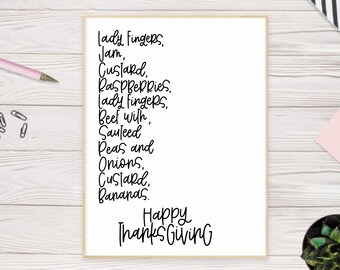 Lady Fingers,
Jam,
Custard,
Raspberries,
Lady Fingers,
Beef with,
Sauteed
Peas and
Onions,
Custard,
Bananas.
Happy
Thanksgiving